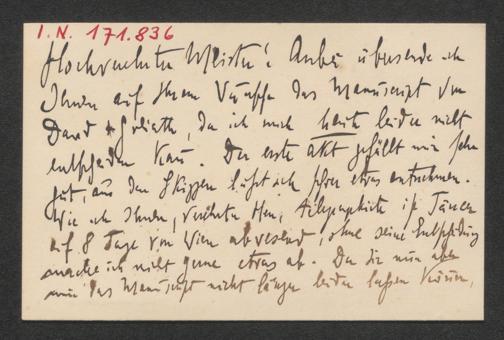 I.N. 171.836
Hochverehrter Meister! Anbei übersende ich
Ihnen auf Ihren Wunsch das Manuscript von
David & Goliath, da ich mich heute leider nicht
entscheiden kann. Der erste Akt gefällt mir sehr
gut, aus den Skizzen läßt sich schon etwas entnehmen.
Wie ich Ihnen, verehrter Herr, telegraphierte ist
auf 8 Tage von Wien abwesend, ohne seine Entscheidung
mache ich nicht gerne etwas ab. Da Sie mir aber
das Manuscript nicht länger leider lassen können,